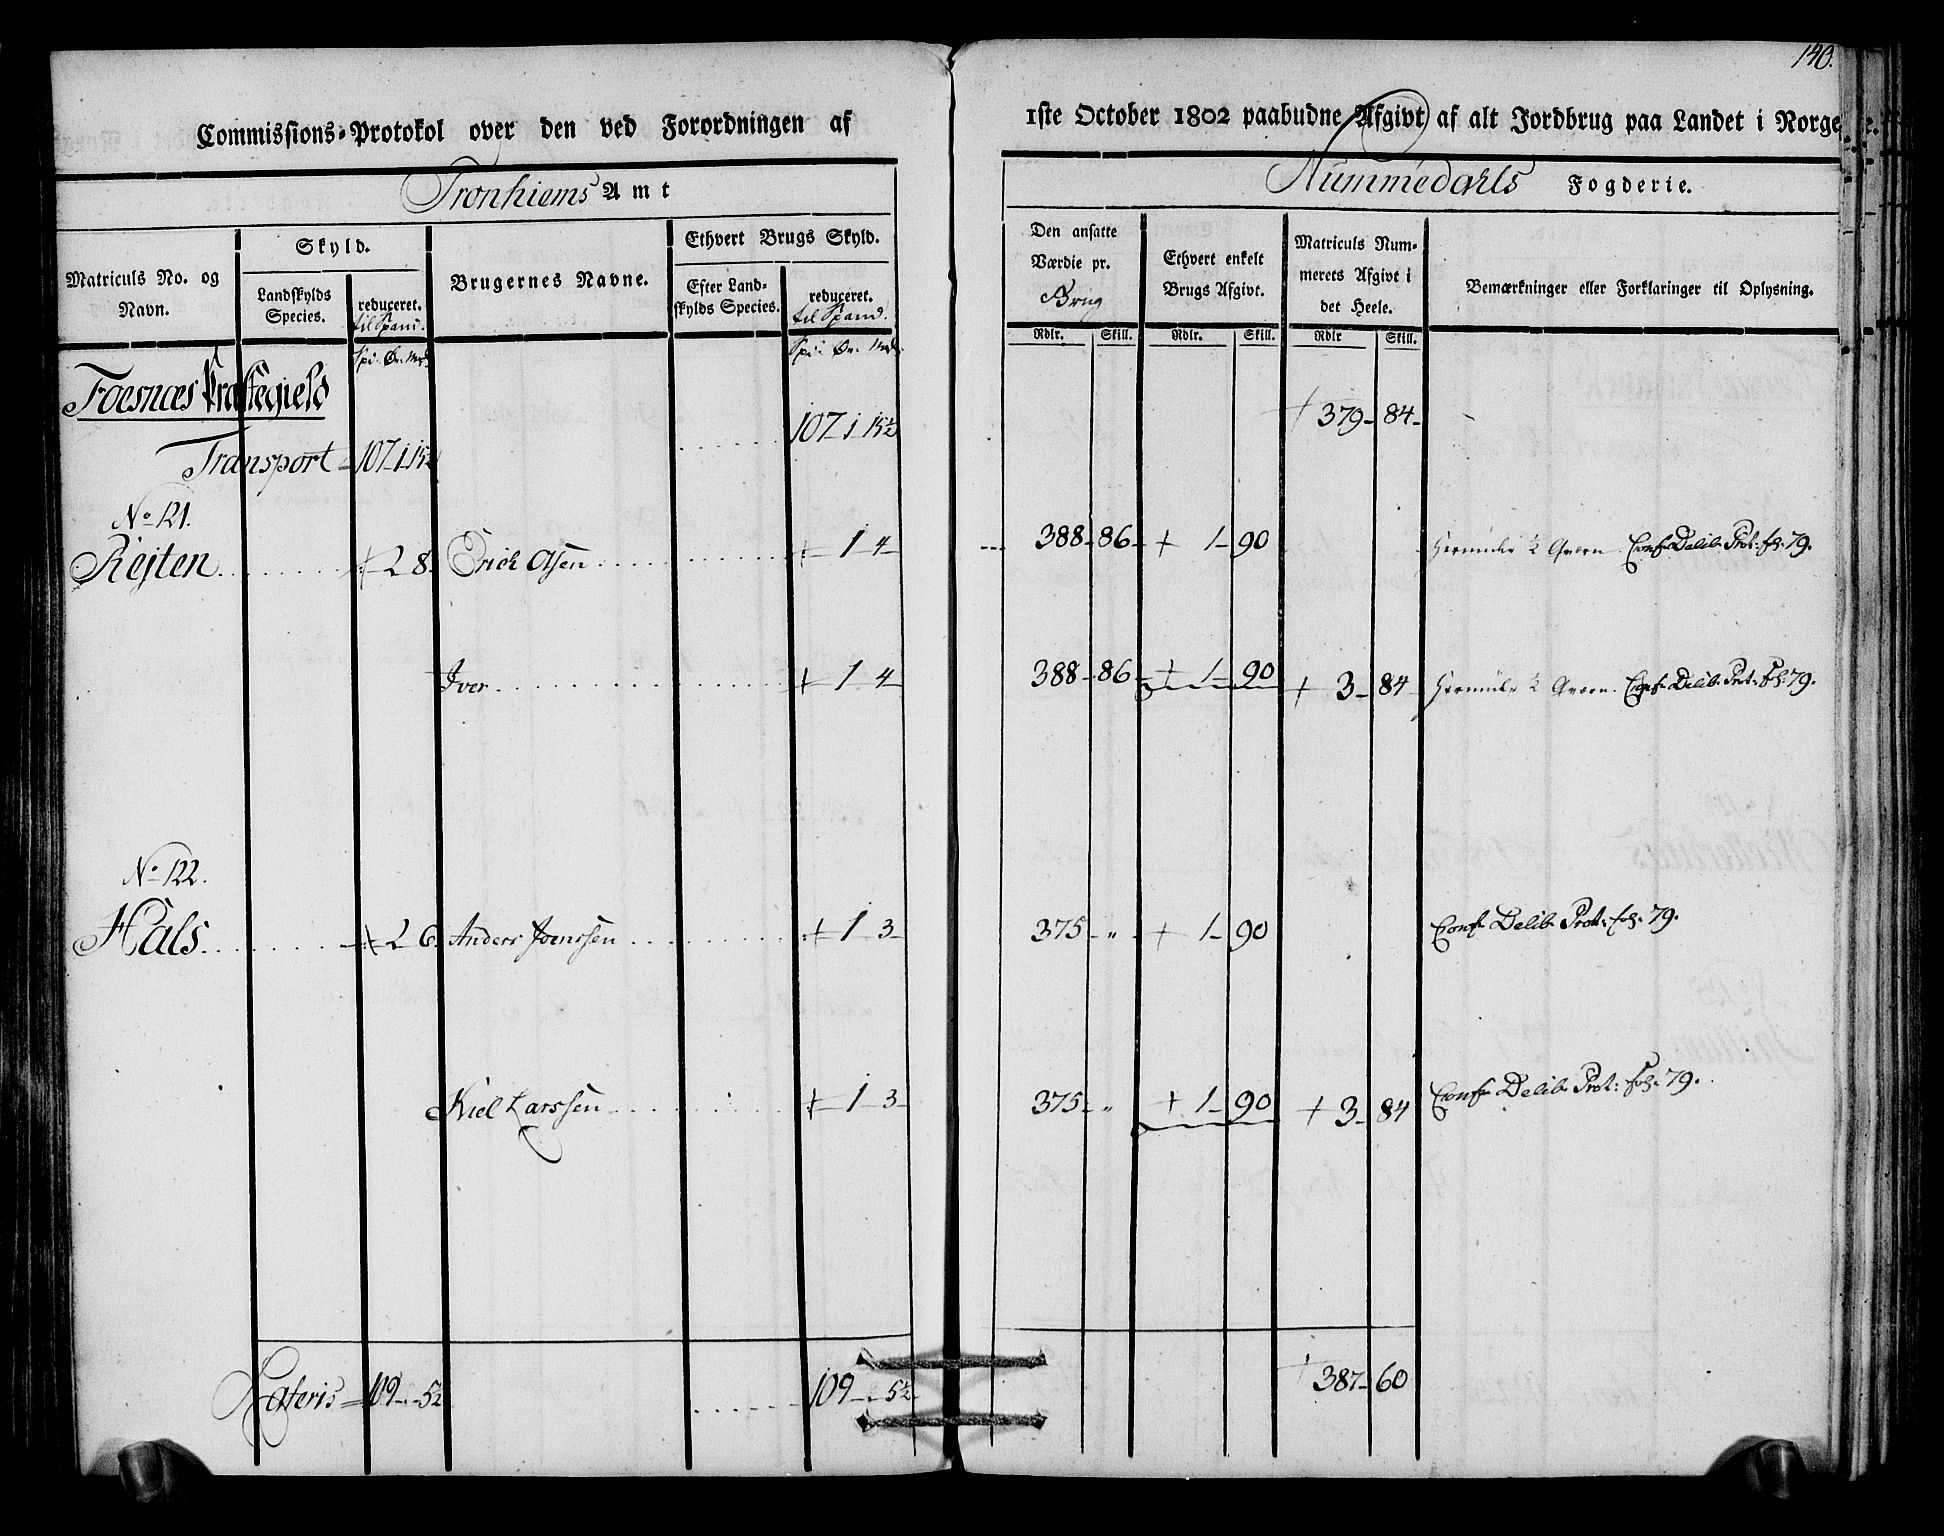 140.
Commissions-Protokol over den ved Forordningen af 1ste October 1802 paabudne Afgivt af alt Jordbrug paa Landet i Norge.
Tronhiems Amt
Nummedahls Fogderie.
Matriculs No. og Navn.
Skyld.
Landskylds Species.
reduceret.
til Spand.
Brugernes Navne.
Ethvert Brugs Skyld.
Efter Landskylds Species.
reduceret.
til Spand.
Den ansatte Værdie pr. Brug
Ethvert enkelt Brugs Afgivt.
Matriculs Nummerets Afgivt i det Heele.
Bemærkninger eller Forklaringer til Oplysning.
Rdlr. Skill. Rdlr. Skill. Rdlr Skill.
Foesnæs Præstegield
Transport 107 1 15½ 107 1 15½ 379 84
No 121.
Rejten 2 8 Erich Olsen 1 4 388 86 1 90 Conf. Delib. Prot: fol: 79.
Iver 1 4 388 86 1 90 3 84 Conf. Delib. Prot: fol: 79.
No 122.
Hals 2 6 Anders Joenssen 1 3 375 " 1 90 Conf. Delib. Prot: fol: 79.
Kiel Larssen 1 3 375 " 1 90 3 84 Conf. Delib. Prot: fol: 79.
Lateris 109 5½ 109 5½ 387 60